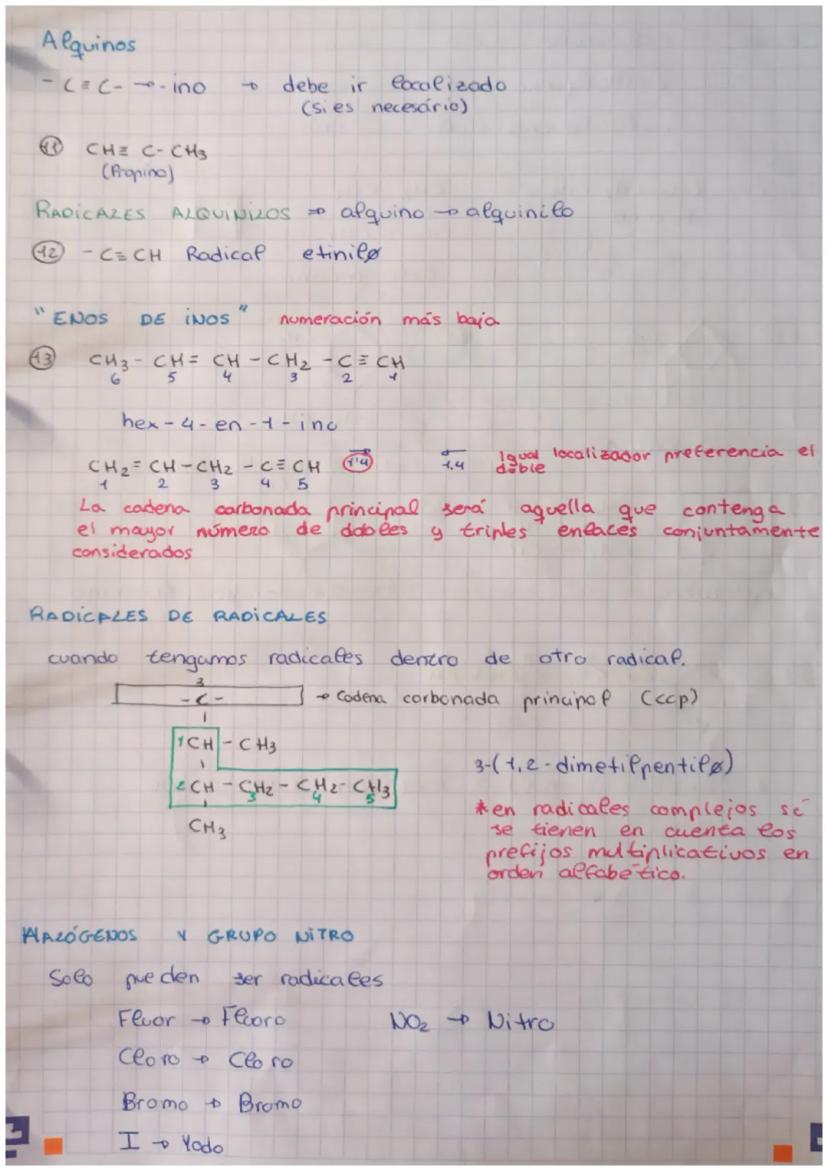 Alquinos
- C ≡ C - → - ino → debe ir localizado
(si es necesário)
11 CH ≡ C - CH3
(Propino)
RADICALES ALQUINILOS ⇒ alquino → alquinilo
12 - C ≡ CH Radical etinilo
"ENOS DE iNOS" numeración más baja
13 CH3 - CH = CH - CH2 - C ≡ CH
6 5 4 3 2 1
hex - 4 - en - 1 - ino
CH2 = CH - CH2 - C ≡ CH 1,4 1,4 Igual localizador preferencia el
doble
1 2 3 4 5
La cadena carbonada principal será aquella que contenga
el mayor número de dobles y triples enlaces conjuntamente
considerados
RADICALES DE RADICALES
cuando tengamos radicales dentro de otro radical.
3
- C - → Cadena carbonada principal (ccp)
1 CH - CH3
3-(1,2-dimetilpentilo)
2 CH - CH2 - CH2 - CH3
3 4 5
CH3
*en radicales complejos sí
se tienen en cuenta los
prefijos multiplicativos en
orden alfabético.
HALÓGENOS Y GRUPO NiTRO
Solo pueden ser radicales
Fluor → Fluoro NO2 → Nitro
Cloro → Cloro
Bromo → Bromo
I → Yodo